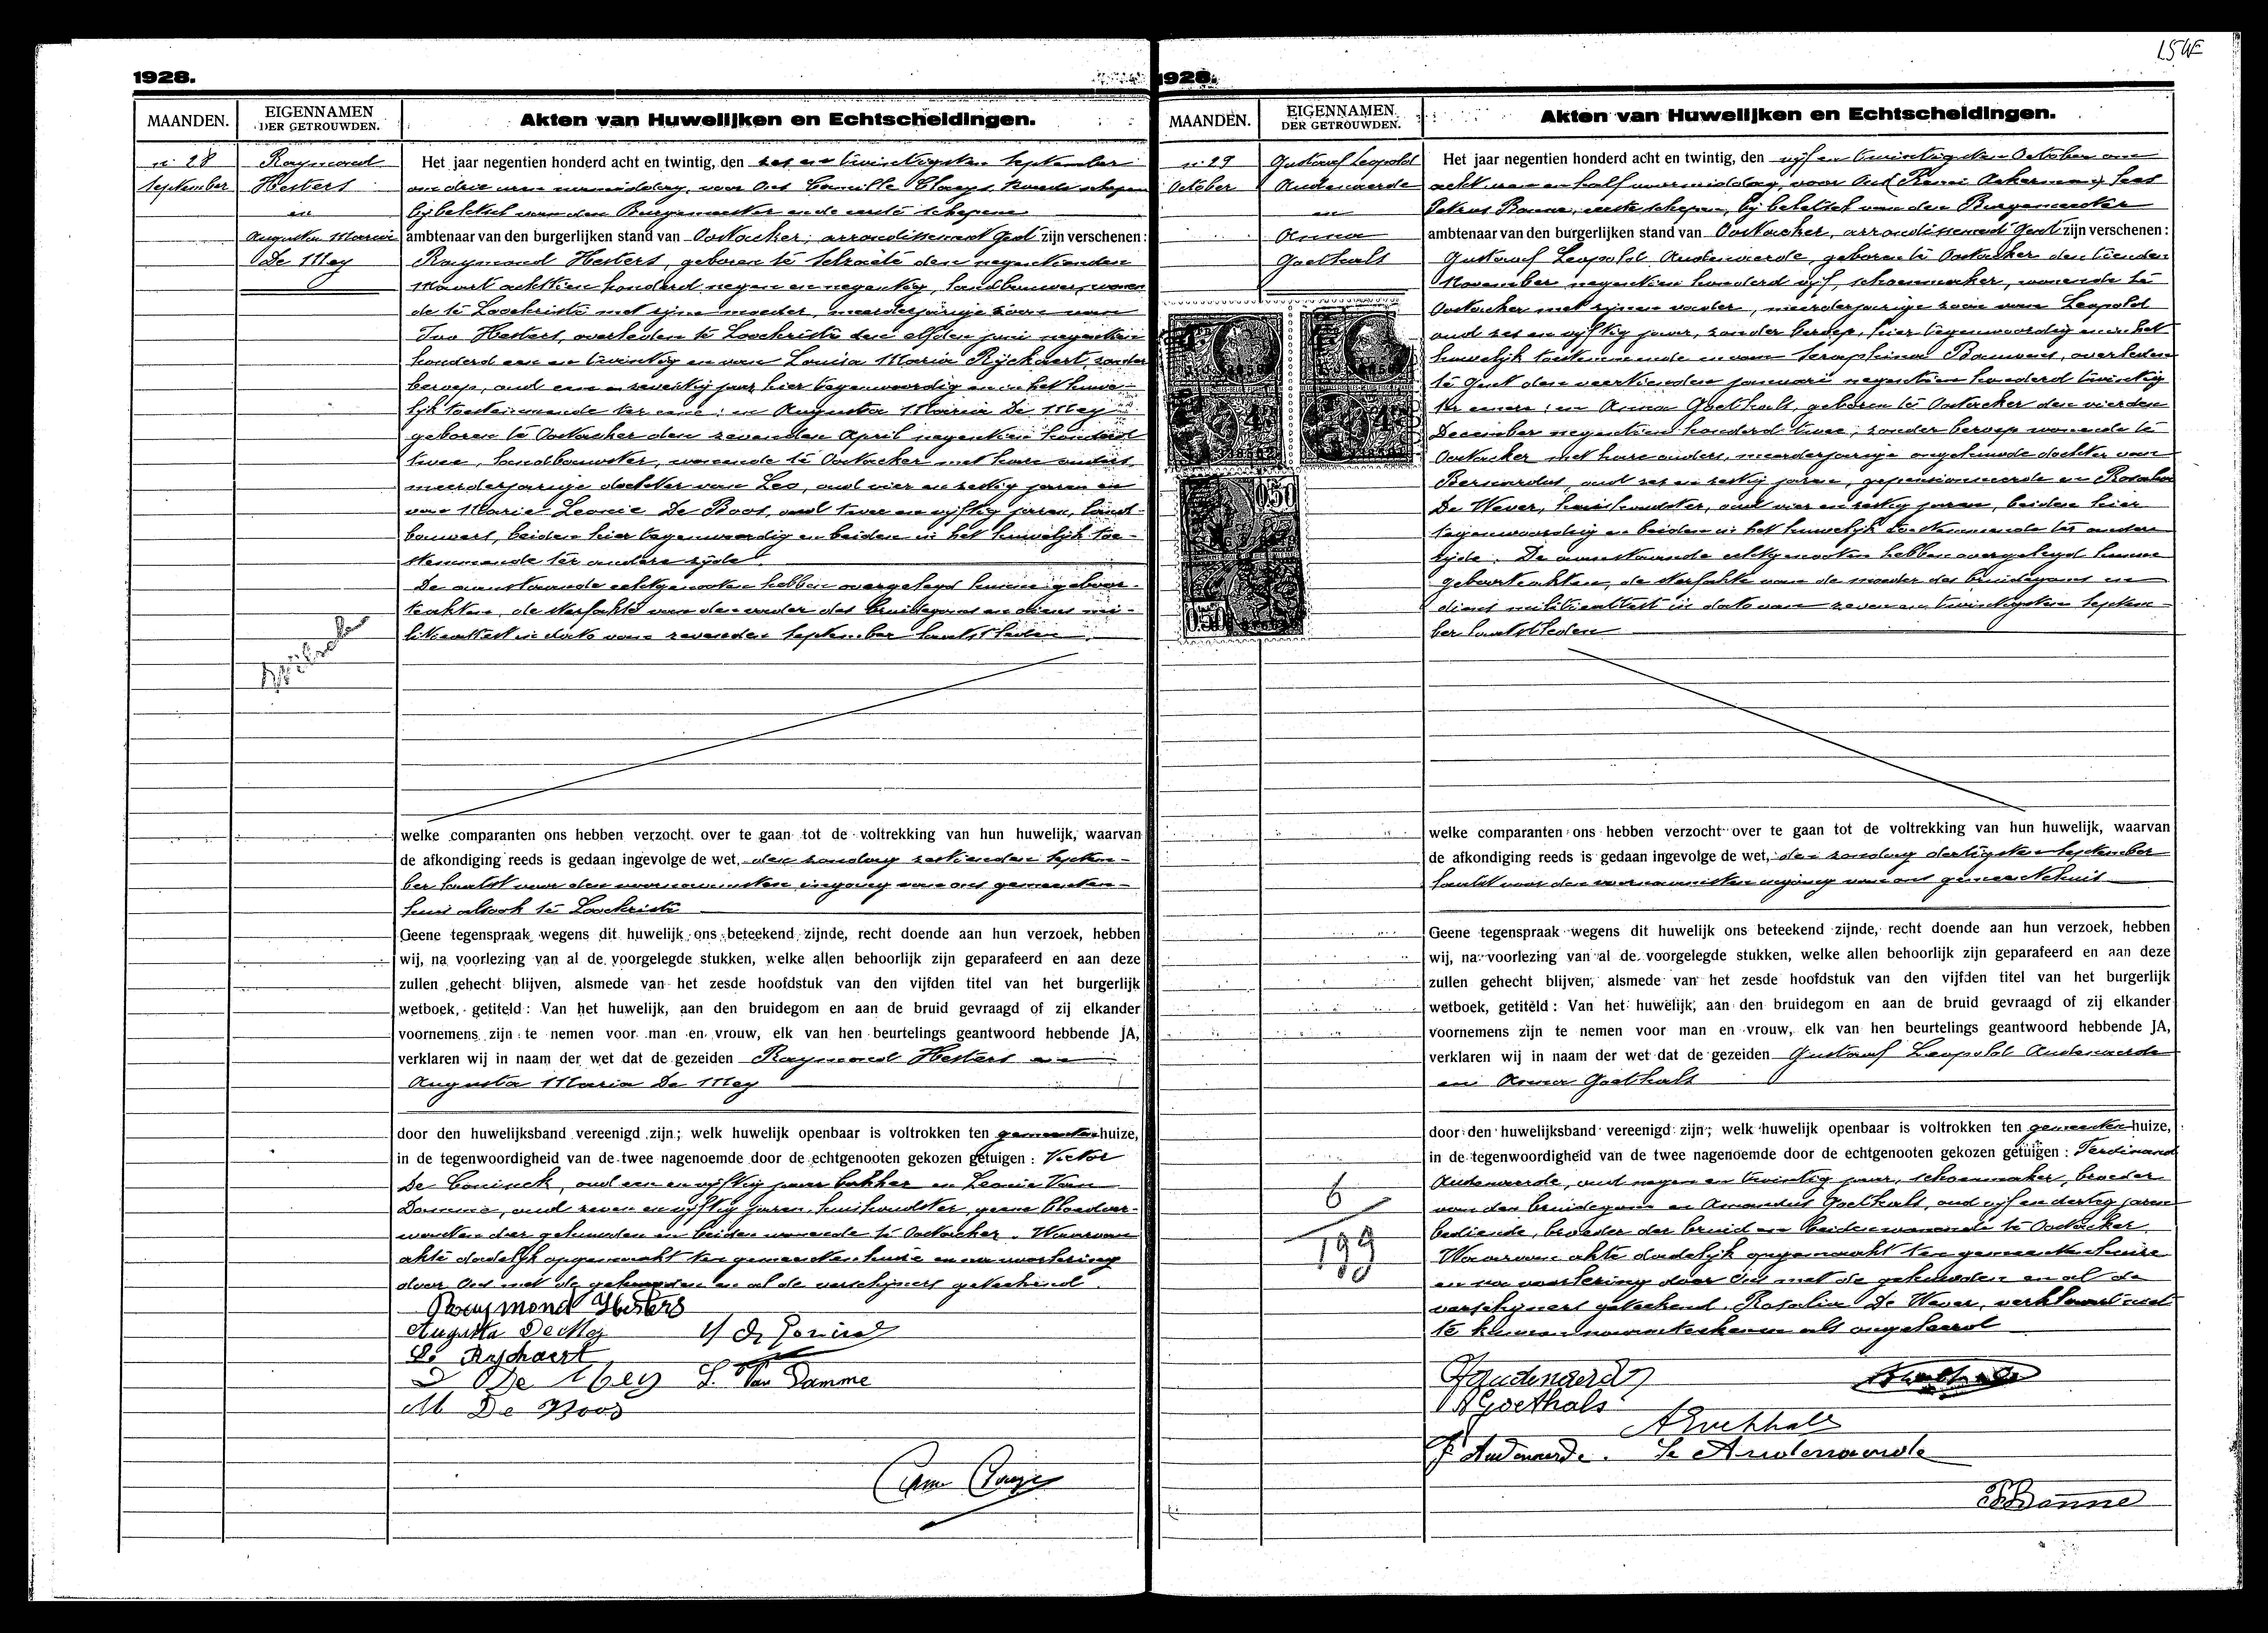 154E
1928.
MAANDEN.
EIGENNAMEN
DER GETROUWDEN.
Akten van Huwelijken en Echtscheidingen.
n: 28
September
Raymond
Hesters
en
Augusta Maria
De Mey
Het jaar negentien honderd acht en twintig, den zes en twintigsten September
om drie uren namiddag, voor Ons Camille Claeys, tweede schepen
bij beletsel van den Burgemeester en de eerste schepene
ambtenaar van den burgerlijken stand van Oostacker, arrondissement Gent zijn verschenen:
Raymond Hesters, geboren te Selzaete den negentienden
Maart achttien honderd negen en negentig, landbouwer, wonen-
de te Loochristi met zijne moeder, meerderjarige zoon van
Ivo Hesters, overleden te Loochristi den elfden juni negentien
honderd een en twintig en van Louisa Maria Rijckaert, zonder
beroep, oud een en zeventig jaar hier tegenwoordig en in het huwe-
lijk toestemmende ter eene; en Augusta Maria De Mey
geboren te Oostacker den zevenden April negentien honderd
twee, landbouwster, wonende te Oostacker met hare ouders,
meerderjarige dochter van Leo, oud vier en zestig jaren en
van Marie Leonie De Roos, oud twee en vijftig jaren, land-
bouwers, beiden hier tegenwoordig en beiden in het huwelijk toe-
stemmende ter andere zijde.
De aanstaande echtgenooten hebben overgelegd hunne geboor-
teakten, de sterfakte van den vader des bruidegoms en diens mi-
litieattest in dato van zevenden September laatstleden.
welke comparanten ons hebben verzocht over te gaan tot de voltrekking van hun huwelijk, waarvan
de afkondiging reeds is gedaan ingevolge de wet, den zondag zestienden Septem-
ber laatst voor den voornaamsten ingang van ons gemeenten-
huis alsook te Loochristi
Geene tegenspraak wegens dit huwelijk ons beteekend zijnde, recht doende aan hun verzoek, hebben
wij, na voorlezing van al de voorgelegde stukken, welke allen behoorlijk zijn geparafeerd en aan deze
zullen gehecht blijven, alsmede van het zesde hoofdstuk van den vijfden titel van het burgerlijk
wetboek, getiteld: Van het huwelijk, aan den bruidegom en aan de bruid gevraagd of zij elkander
voornemens zijn te nemen voor man en vrouw, elk van hen beurtelings geantwoord hebbende JA,
verklaren wij in naam der wet dat de gezeiden Raymond Hesters en
Augusta Maria De Mey
door den huwelijksband vereenigd zijn; welk huwelijk openbaar is voltrokken ten gemeentenhuize,
in de tegenwoordigheid van de twee nagenoemde door de echtgenooten gekozen getuigen: Victor
De Coninck, oud een en vijftig jaar bakker en Leonie Van
Damme, oud zeven en vijftig jaren, huishoudster, geene bloedver-
wanten der gehuwden en beiden wonende te Oostacker. Waarvan
akte dadelijk opgemaakt ten gemeentenhuize en na voorlezing
door Ons met de gehuwden en al de verschijners geteekend.
Raymond Hesters
Augusta De Mey
L. Ryckaert
De Mey L. Van Damme
M De Roos
1928.
MAANDEN.
EIGENNAMEN
DER GETROUWDEN.
Akten van Huwelijken en Echtscheidingen.
n: 29
October
Gustaaf Leopold
Audenaerde
en
Anna
Goethals
0.50
0.50
6
199
Het jaar negentien honderd acht en twintig, den vijf en twintigsten October om
acht uren en half voormiddag, voor Ons
Petrus Bonne, eerste schepen, bij beletsel van den Burgemeester
ambtenaar van den burgerlijken stand van Oostacker, arrondissement Gent zijn verschenen:
Gustaaf Leopold Audenaerde, geboren te Oostacker den tienden
November negentien honderd vijf, schoenmaker, wonende te
Oostacker met zijnen vader, meerderjarige zoon van Leopold
oud zes en vijftig jaar, zonder beroep, hier tegenwoordig en in het
huwelijk toestemmende en van Seraphina Bauwens, overleden
te Gent den veertienden januari negentien honderd twintig
ter eenre; en Anna Goethals, geboren te Oostacker den vierden
December negentien honderd twee, zonder beroep wonende te
Oostacker met hare ouders, meerderjarige ongehuwde dochter van
Bernardus, oud zes en zestig jaren, gepensionneerde en Rosalia
De Wever, huishoudster, oud vier en zestig jaren, beiden hier
tegenwoordig en beiden in het huwelijk toestemmende ter andere
zijde. De aanstaande echtgenooten hebben overgelegd hunne
geboorteakten, de sterfakte van de moeder des bruidegoms en
diens militieattest in dato van zeven en twintigsten Septem-
ber laatstleden
welke comparanten ons hebben verzocht over te gaan tot de voltrekking van hun huwelijk, waarvan
de afkondiging reeds is gedaan ingevolge de wet, den zondag dertigsten September
laatst voor den voornaamsten ingang van ons gemeentehuis
Geene tegenspraak wegens dit huwelijk ons beteekend zijnde, recht doende aan hun verzoek, hebben
wij, na voorlezing van al de voorgelegde stukken, welke allen behoorlijk zijn geparafeerd en aan deze
zullen gehecht blijven, alsmede van het zesde hoofdstuk van den vijfden titel van het burgerlijk
wetboek, getiteld: Van het huwelijk, aan den bruidegom en aan de bruid gevraagd of zij elkander
voornemens zijn te nemen voor man en vrouw, elk van hen beurtelings geantwoord hebbende JA,
verklaren wij in naam der wet dat de gezeiden Gustaaf Leopold Audenaerde
en Anna Goethals
door den huwelijksband vereenigd zijn; welk huwelijk openbaar is voltrokken ten gemeentenhuize,
in de tegenwoordigheid van de twee nagenoemde door de echtgenooten gekozen getuigen: Ferdinand
Audenaerde, oud negen en twintig jaar, schoenmaker, broeder
van den bruidegom en Amandus Goethals, oud vijf en dertig jaren
bediende, broeder der bruid en beiden wonende te Oostacker.
Waarvan akte dadelijk opgemaakt ten gemeentenhuize
en na voorlezing door Ons met de gehuwden en al de
verschijners geteekend. Rosalia De Wever, verklaard niet
te kunnen naamteekenen als ongeleerd
G Audenaerde
A Goethals
A Goethals
F. Audenaerde. Le Audenaerde
P Bonne